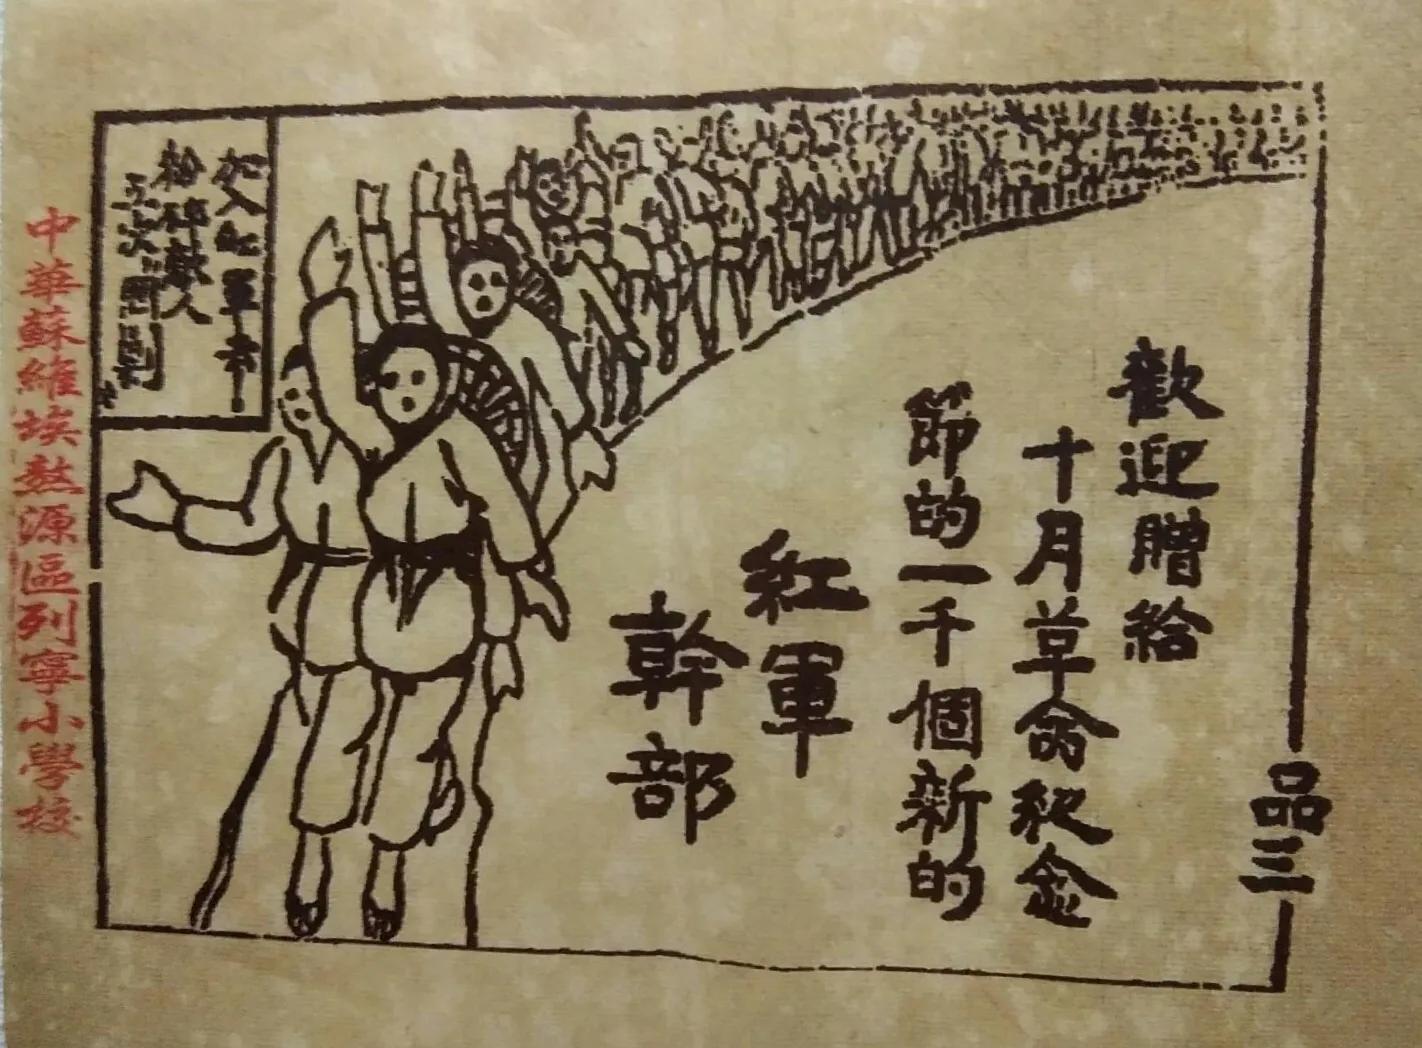 品三
歡迎贈給
十月革命紀念
節的一千個新的
紅軍
幹部
加入紅軍去
粉碎敵人
五次圍剿
中華蘇維埃熬源區列寧小學校